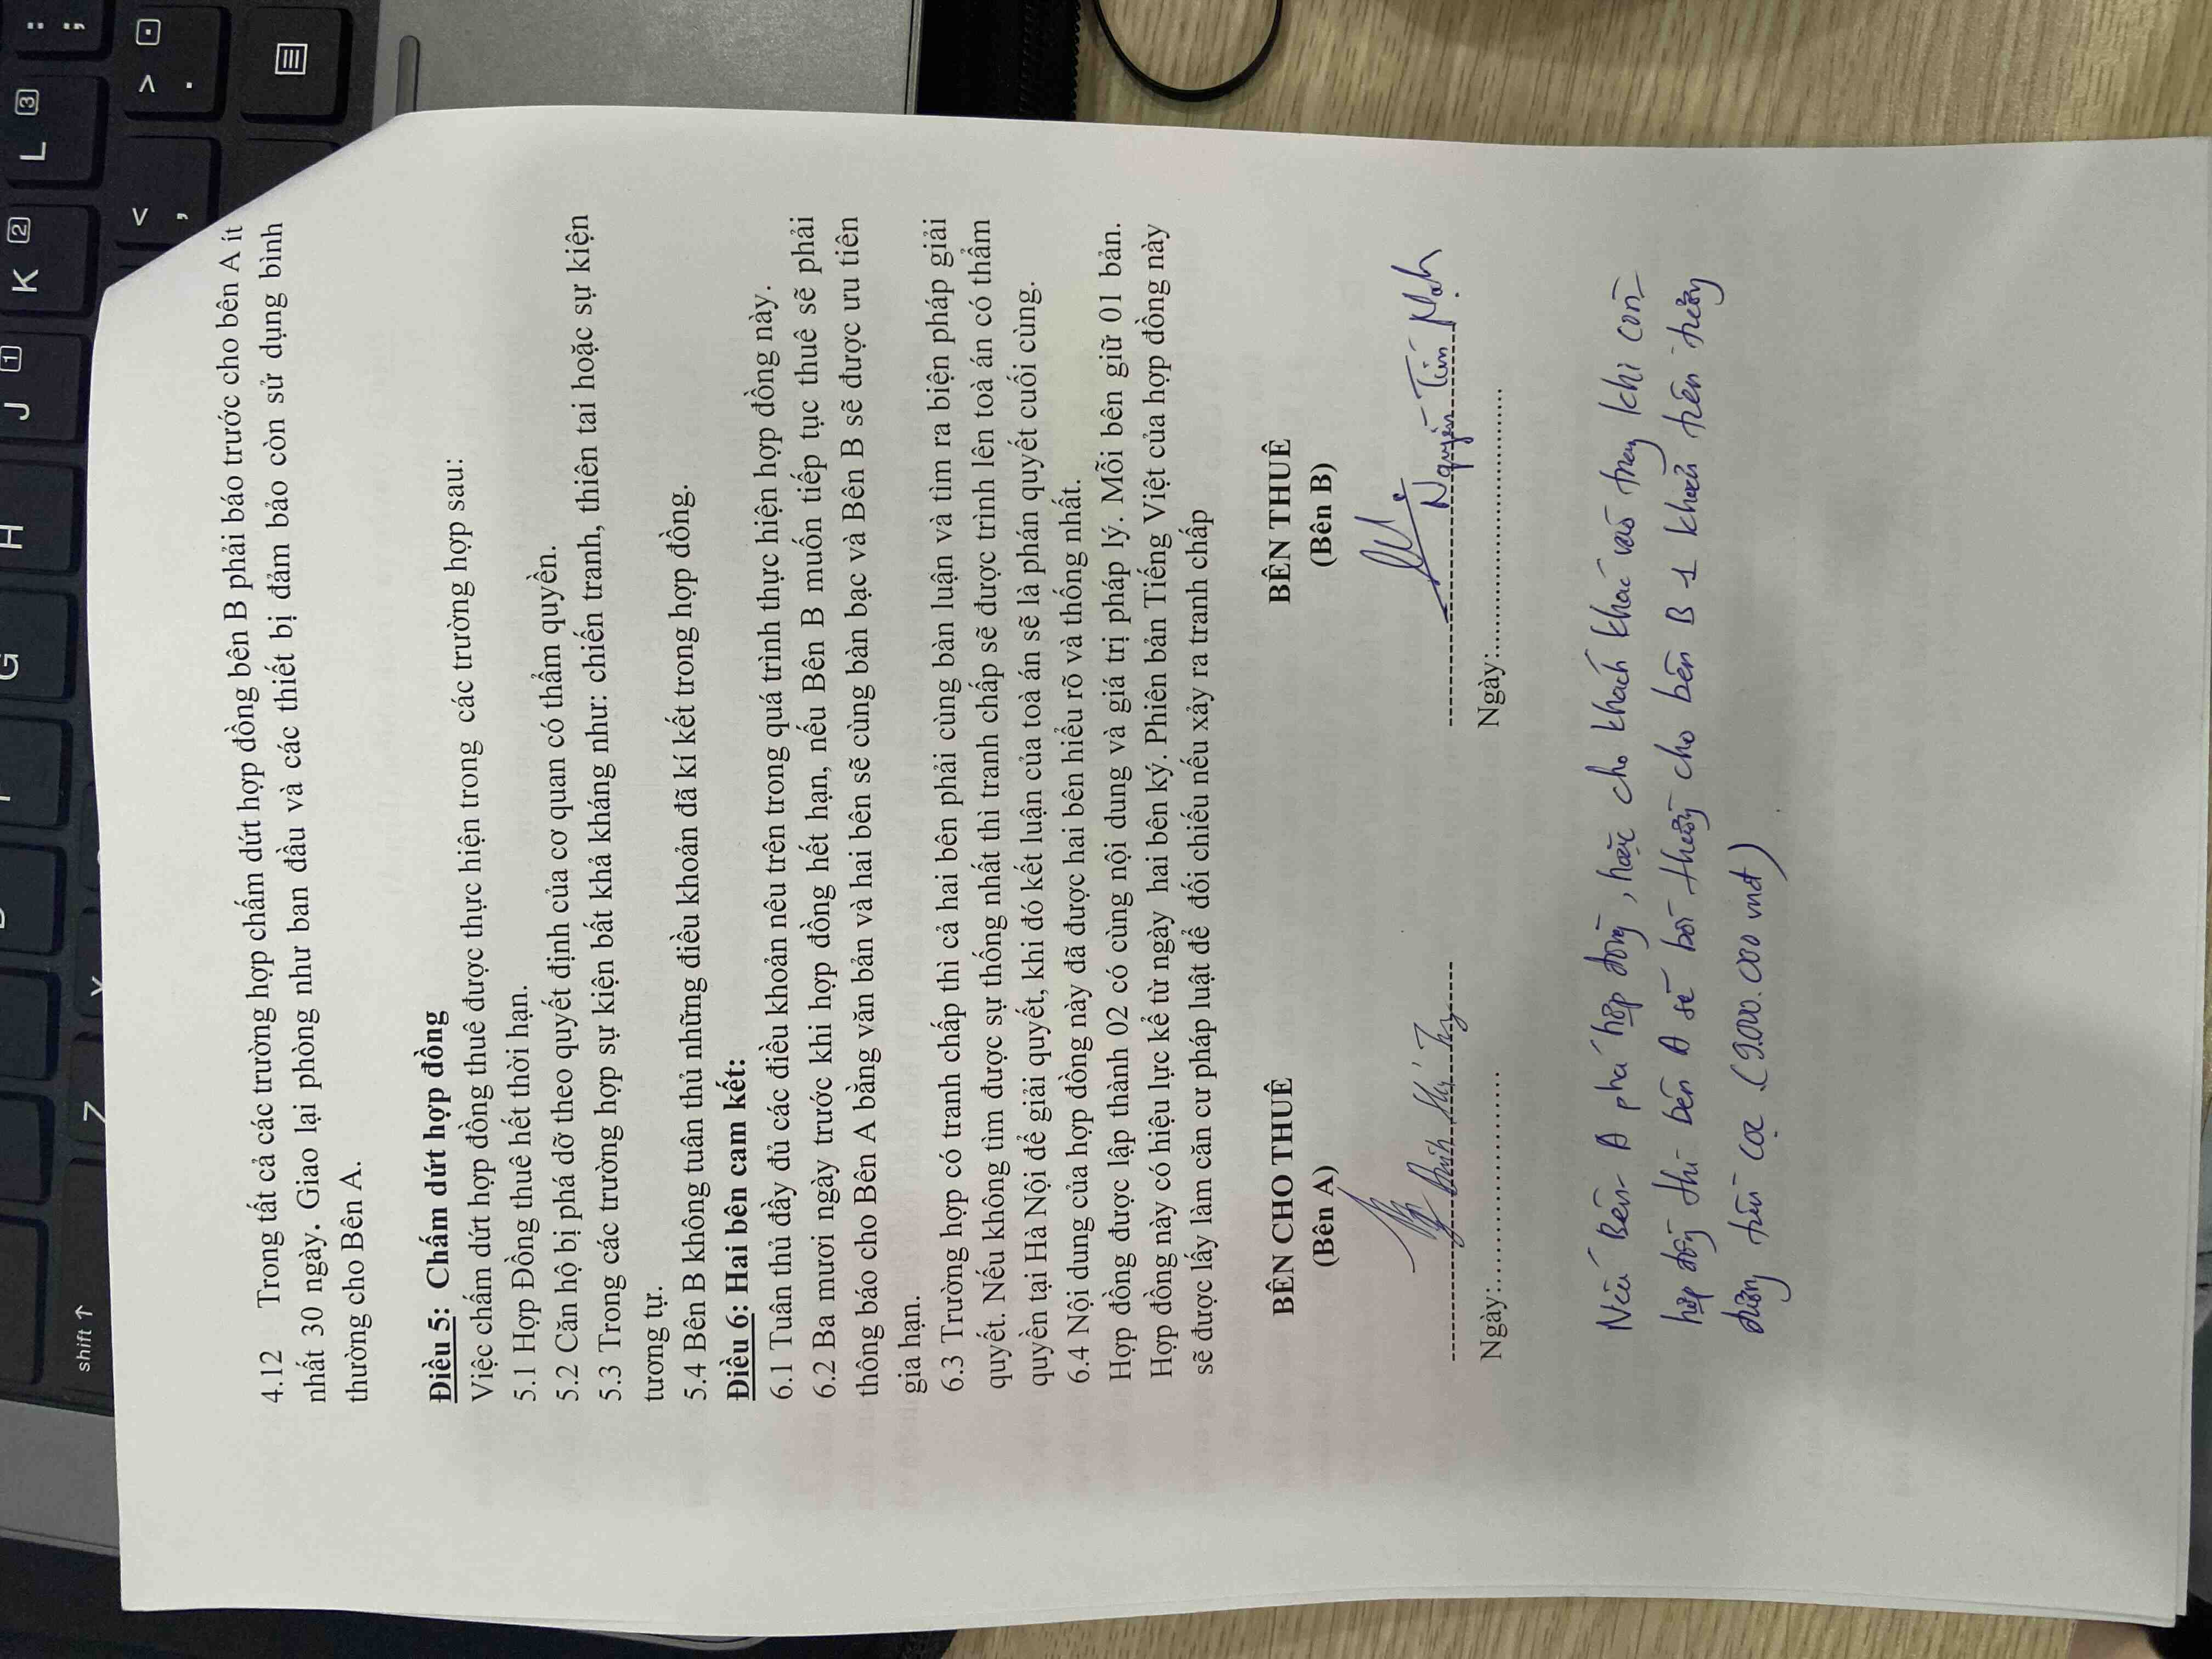 4.12 Trong tất cả các trường hợp chấm dứt hợp đồng bên B phải báo trước cho bên A ít
nhất 30 ngày. Giao lại phòng như ban đầu và các thiết bị đảm bảo còn sử dụng bình
thường cho Bên A.
Điều 5: Chấm dứt hợp đồng
Việc chấm dứt hợp đồng thuê được thực hiện trong các trường hợp sau:
5.1 Hợp Đồng thuê hết thời hạn.
5.2 Căn hộ bị phá dỡ theo quyết định của cơ quan có thẩm quyền.
5.3 Trong các trường hợp sự kiện bất khả kháng như: chiến tranh, thiên tai hoặc sự kiện
tương tự.
5.4 Bên B không tuân thủ những điều khoản đã kí kết trong hợp đồng.
Điều 6: Hai bên cam kết:
6.1 Tuân thủ đầy đủ các điều khoản nêu trên trong quá trình thực hiện hợp đồng này.
6.2 Ba mươi ngày trước khi hợp đồng hết hạn, nếu Bên B muốn tiếp tục thuê sẽ phải
thông báo cho Bên A bằng văn bản và hai bên sẽ cùng bàn bạc và Bên B sẽ được ưu tiên
gia hạn.
6.3 Trường hợp có tranh chấp thì cả hai bên phải cùng bàn luận và tìm ra biện pháp giải
quyết. Nếu không tìm được sự thống nhất thì tranh chấp sẽ được trình lên toà án có thẩm
quyền tại Hà Nội để giải quyết, khi đó kết luận của toà án sẽ là phán quyết cuối cùng.
6.4 Nội dung của hợp đồng này đã được hai bên hiểu rõ và thống nhất.
Hợp đồng được lập thành 02 có cùng nội dung và giá trị pháp lý. Mỗi bên giữ 01 bản.
Hợp đồng này có hiệu lực kể từ ngày hai bên ký. Phiên bản Tiếng Việt của hợp đồng này
sẽ được lấy làm căn cư pháp luật để đối chiếu nếu xảy ra tranh chấp
BÊN CHO THUÊ BÊN THUÊ
(Bên A) (Bên B)
Đinh Nguyễn Tiến Mạnh
Ngày:........................ Ngày:........................
Nếu Bên A phá hợp đồng, hoặc cho khách khác vào trong khi còn
hợp đồng thì bên A sẽ bồi thường cho bên B 1 khoản tiền tương
đương tiền cọc (9.000.000 vnđ)